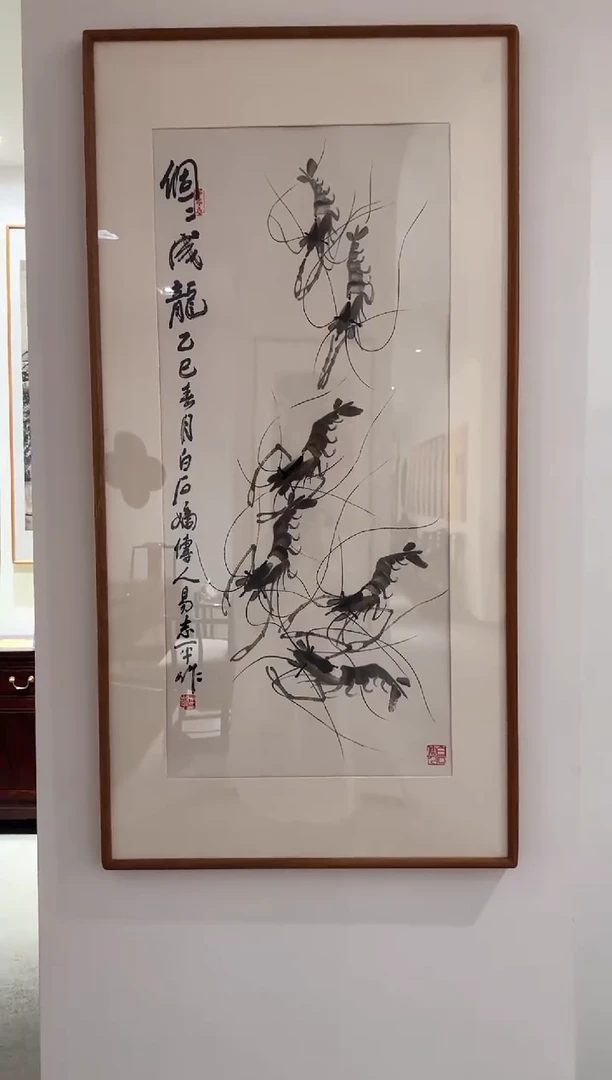 個二成龍乙巳春月白石嫡傳人易志平作